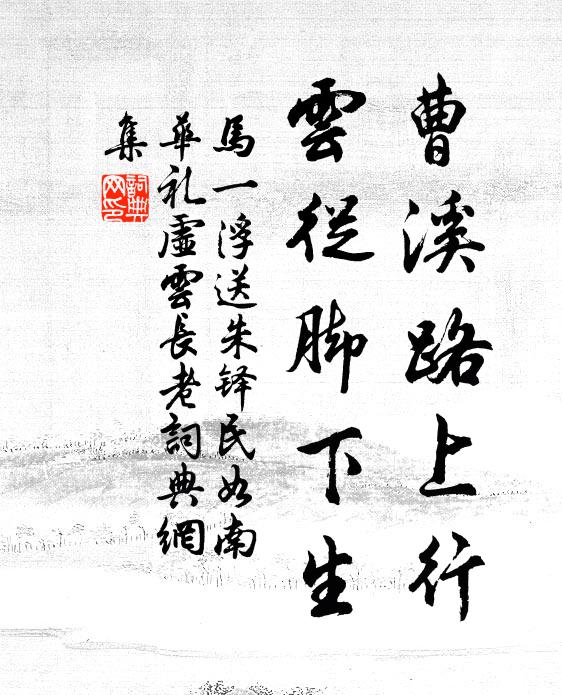 曹溪路上行
雲從脚下生
馬一浮送朱铎民如南
華礼虚雲長老詞典網
集
詞典网印